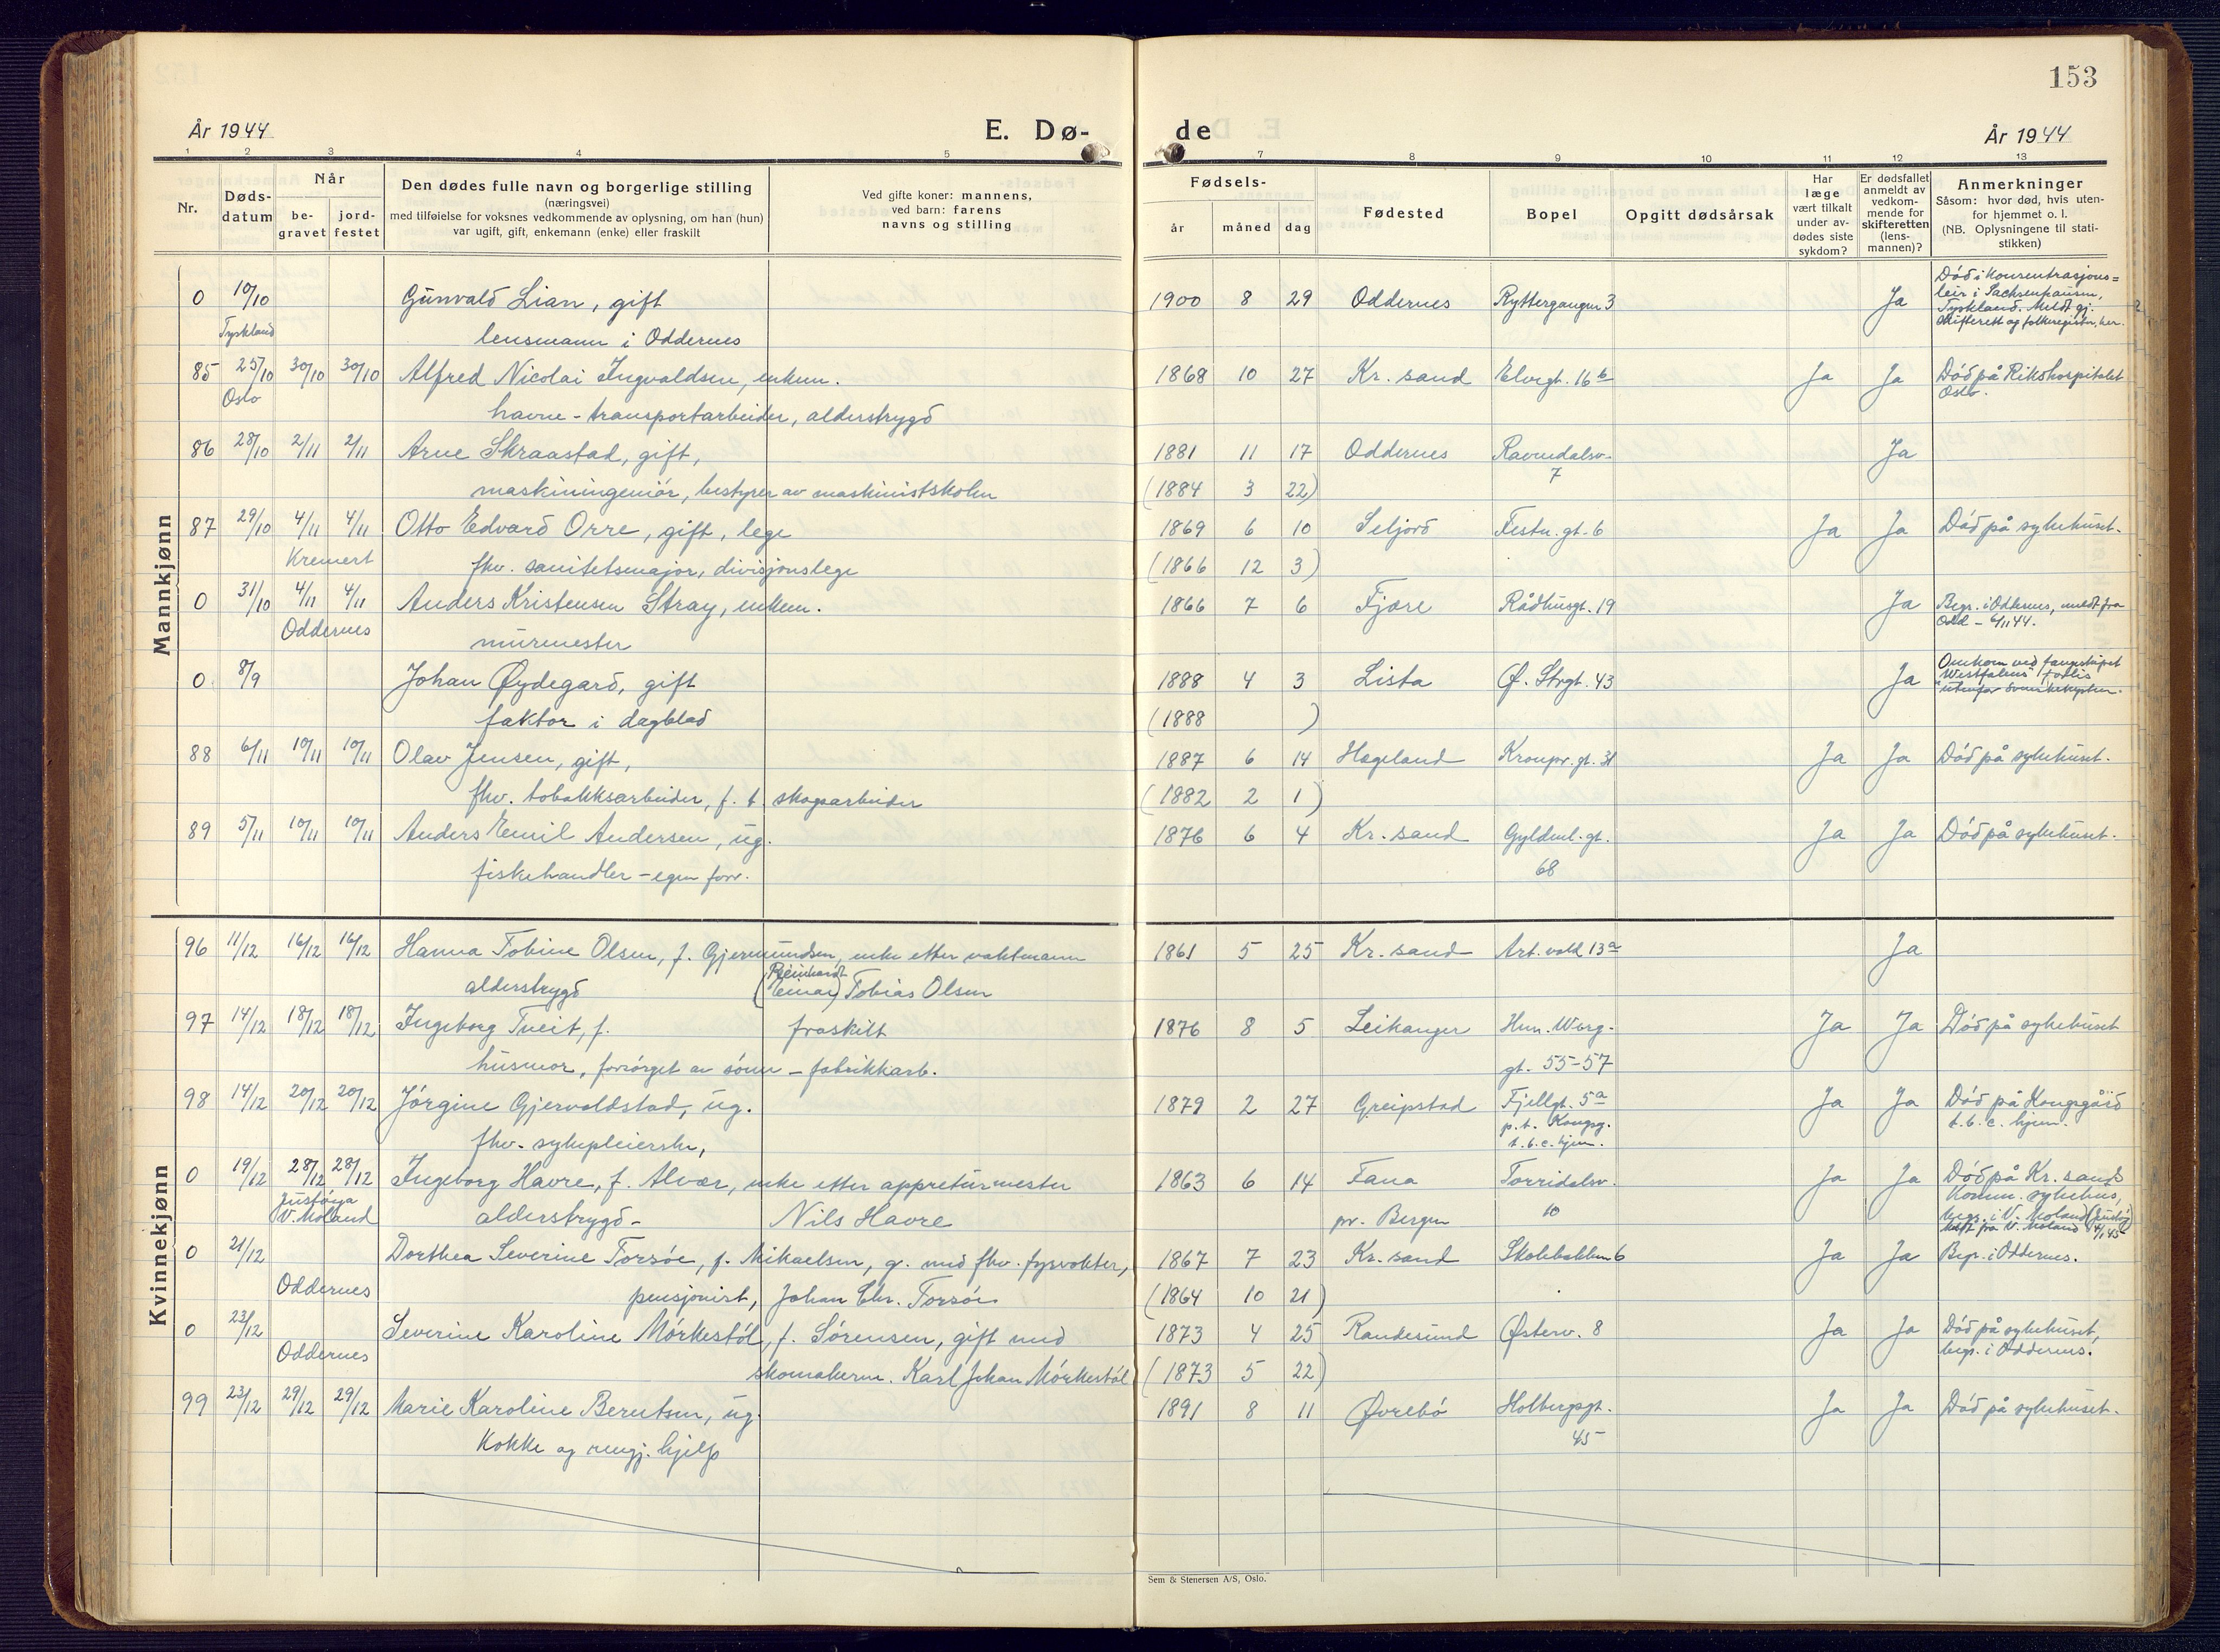 153
År 1944 E. Dø- de År 1944
1 2 3 4 5 7 8 9 10 11 12 13
Nr.
Døds-
datum
Når
be-
gravet
jord-
festet
Den dødes fulle navn og borgerlige stilling
(næringsvei)
med tilføielse for voksnes vedkommende av oplysning, om han (hun)
var ugift, gift, enkemann (enke) eller fraskilt
Ved gifte koner: mannens,
ved barn: farens
navns og stilling
Fødsels-
år måned dag
Fødested
Bopel
Opgitt dødsårsak
Har
læge
vært tilkalt
under av-
dødes siste
sykdom?
Er dødsfallet
anmeldt av
vedkom-
mende for
skifteretten
(lens-
mannen)?
Anmerkninger
Såsom: hvor død, hvis uten-
for hjemmet o. l.
(NB. Oplysningene til stati-
stikken)
Mannkjønn
0 10/10 Gunvald Lian, gift 1900 8 29 Oddernes Ryttergangen 3 Ja Død i Konsentrasjons=
leir i Sachsenhausen,
Tyskland. Meldt gj.
skifterett og folkeregistr, her.
Tyskland lensmann i Oddernes
85 25/10 30/10 30/10 Alfred Nicolai Ingvaldsen, enkem. 1868 10 27 Kr. sand Elvegt. 16 b Ja Ja Død på Rikshospitalet
Oslo.
Oslo havne-transportarbeider, alderstrygd
86 28/10 2/11 2/11 Arne Skraastad, gift, 1881 11 17 Oddernes Ravnedalsv. Ja
7
maskiningeniør, bestyrer av maskinistskolen (1884 3 22)
87 29/10 4/11 4/11 Otto Edvard Orre, gift, lege 1869 6 10 Seljord Festn. gt. 6 Ja Ja Død på sykehuset.
Kremert fhv. sanitetsmajor, divisjonslege (1866 12 3)
0 31/10 4/11 4/11 Anders Kristensen Stray, enkem. 1866 7 6 Fjære Rådhusgt. 19 Ja Begr. i Oddernes, meldt fra
Odd - 6/11 44.
Oddernes murmester
0 8/9 Johan Øydegard, gift 1888 4 3 Lista Ø. Strgt. 43 Ja Omkom ved fangeskipet
"Westfalens" forlis
utenfor Svenskekysten.
faktor i dagblad (1888 )
88 6/11 10/11 10/11 Olav Jensen, gift, 1887 6 14 Hægeland Kronpr. gt. 31 Ja Ja Død på sykehuset.
fhv. tobakksarbeider, f. t. skogsarbeider (1882 2 1)
89 5/11 10/11 10/11 Anders Emil Andersen, ug. 1876 6 4 Kr. sand Gyldenl. gt. Ja Ja Død på sykehuset.
68
fiskehandler - egen forr.
Kvinnekjønn
96 11/12 16/12 16/12 Hanna Tobine Olsen, f. Gjermundsen, enke etter vaktmann 1861 5 25 Kr. sand Art. vold 13 a Ja
alderstrygd Reinhardt
(Einar) Tobias Olsen
97 14/12 18/12 18/12 Ingeborg Tveit, f. fraskilt 1876 8 5 Leikanger Hen. Werg. Ja Ja Død på sykehuset
gt. 55-57
husmor, forsørget av sønn - fabrikkarb.
98 14/12 20/12 20/12 Jørgine Gjervoldstad, ug. 1879 2 27 Greipstad Fjellgt. 5 a Ja Ja Død på Kongsgård
p. t. Kongsg. t. b. c. hjem.
t. b. c. hjem.
fhv. sykepleierske,
0 19/12 28/12 28/12 Ingeborg Havre, f. Alvær, enke etter appreturmester 1863 6 14 Fana Torridalsv. Ja Ja Død på Kr. sands
Komm. sykehus,
begr. i V. Moland (Justøy)
Meldt fra V. Moland 4/1 45
Justøya
V. Moland alderstrygd - Nils Havre pr. Bergen 10
0 21/12 Dorthea Severine Torsøe, f. Mikaelsen, g. med fhv. fyrvokter, 1867 7 23 Kr. sand Skolebakken 6 Ja Ja Begr. i Oddernes.
Oddernes pensjonist, Johan Chr. Torsøe (1864 10 21)
0 23/12 Severine Karoline Mørkestøl, f. Sørensen, gift med 1873 4 25 Randesund Østerv. 8 Ja Ja Død på sykehuset,
begr. i Oddernes.
Oddernes skomakerm. Karl Johan Mørkestøl (1873 5 22)
99 23/12 29/12 29/12 Marie Karoline Berntsen, ug. 1891 8 11 Øvrebø Holbergsgt. Ja Ja Død på sykehuset.
45
Kokke og rengj. hjelp
Sem & Stenersen A/S, Oslo.